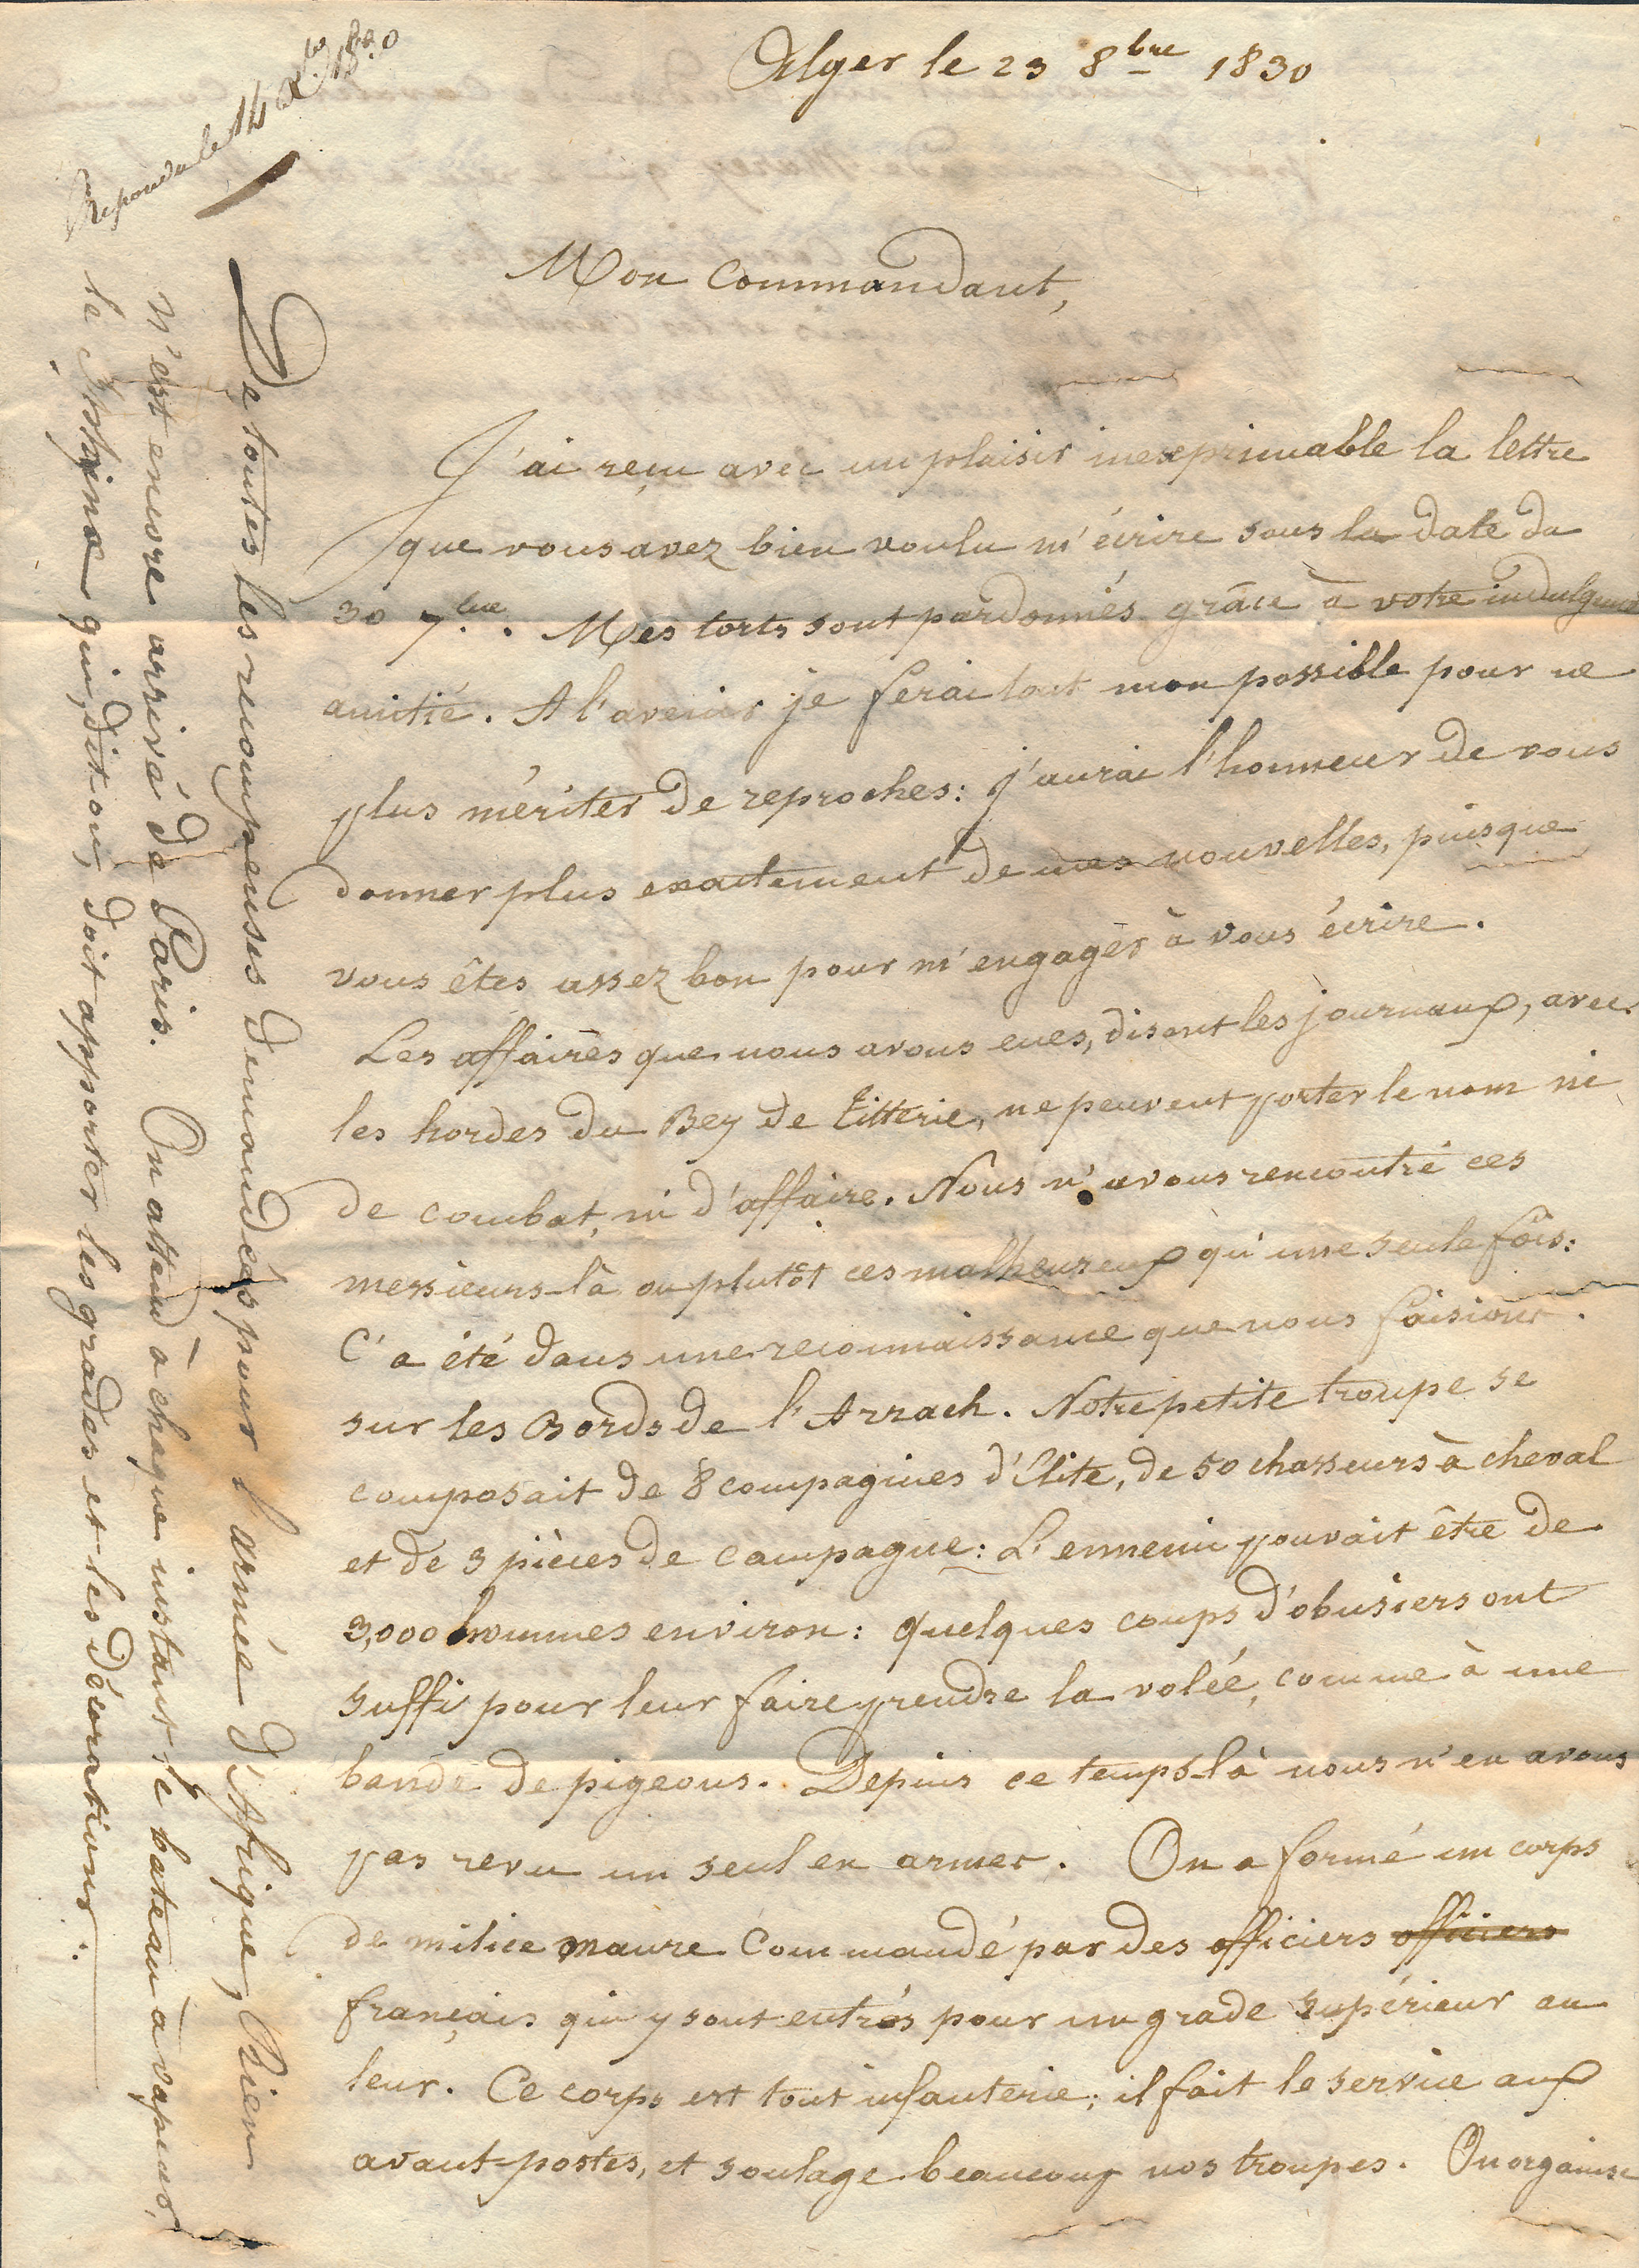 Alger le 23 8bre 1830
Repondu le 14 Xbre 1830
Mon Commandant,
J'ai reçu avec un plaisir inexprimable la lettre
que vous avez bien voulu m'écrire sous la date du
30 7bre. Mes torts sont pardonnés grâce à votre indulgente
amitié. A l'avenir je ferai tout mon possible pour ne
plus mériter de reproches: j'aurai l'honneur de vous
donner plus exactement de mes nouvelles, puisque
vous êtes assez bon pour m'engager à vous écrire.
Les affaires que nous avons eues, disent les journaux, avec
les hordes du Bey de Titterie, ne peuvent porter le nom ni
de combat, ni d'affaire. Nous n'avons rencontré ces
messieurs-là ou plutôt ces malheureux qu'une seule fois:
C'a été dans une reconnaissance que nous faisions
sur les Bords de l'Arrach. Notre petite troupe se
composait de 8 compagnies d'Élite, de 50 chasseurs à cheval
et de 3 pièces de campagne: L'ennemi pouvait être de
3,000 hommes environ: quelques coups d'obusiers ont
suffi pour leur faire prendre la volée, comme à une
bande de pigeons. Depuis ce temps-là nous n'en avons
pas revu un seul en armes. On a formé un corps
de milice maure Commandé par des officiers officiers
français qui y sont entrés pour un grade supérieur au
leur. Ce corps est tout infanterie; il fait le service aux
avant-postes, et soulage beaucoup nos troupes. On organise
De toutes les récompenses demandées pour l'armée d'Afrique, Rien
n'est encore arrivé de Paris. On attend à chaque instant le bateau à vapeur,
le Sphinx qui, dit on, doit apporter les grades et les décorations.